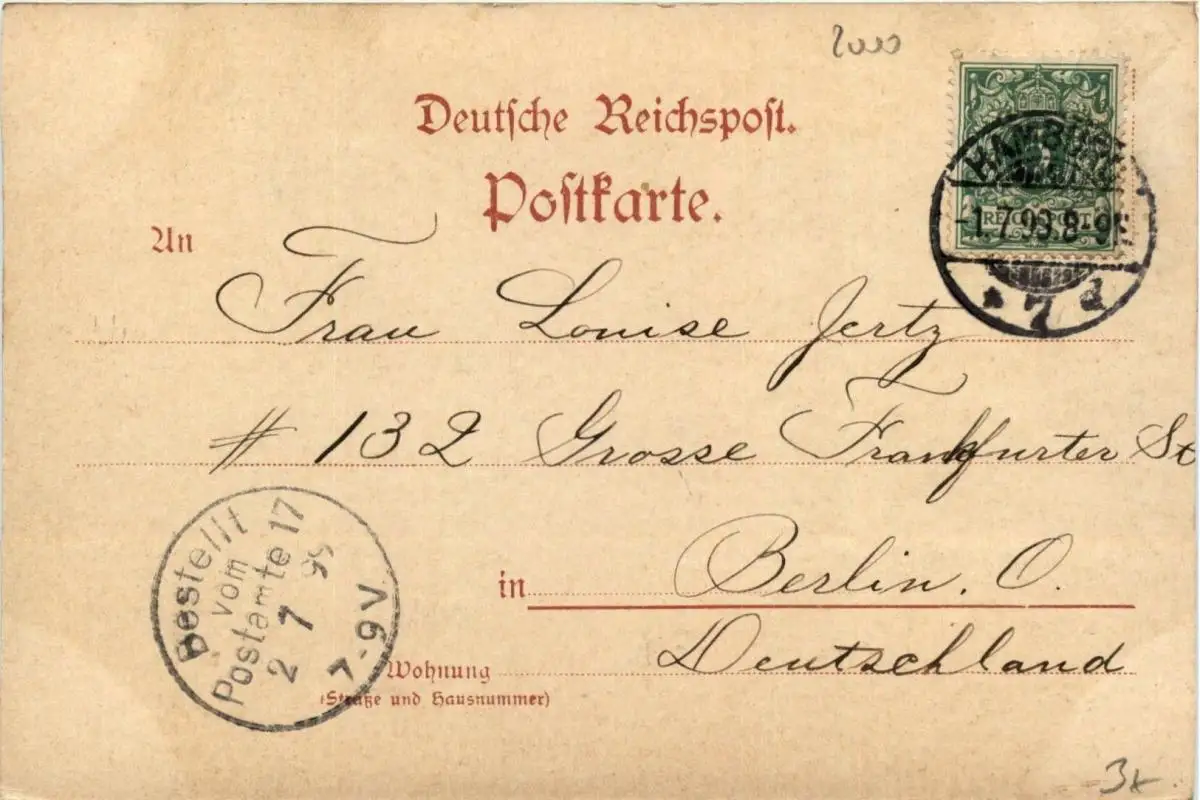 2000
Deutsche Reichspost.
Postkarte.
HAMBURG
-1.7.99.8-9N.
* 7 d
REICHSPOST
An
Frau Louise Jertz
# 132 Grosse Frankfurter St
in Berlin. O.
Deutschland
Wohnung
(Straße und Hausnummer)
Bestellt
vom
Postamte 17
2 7 99
7-9V